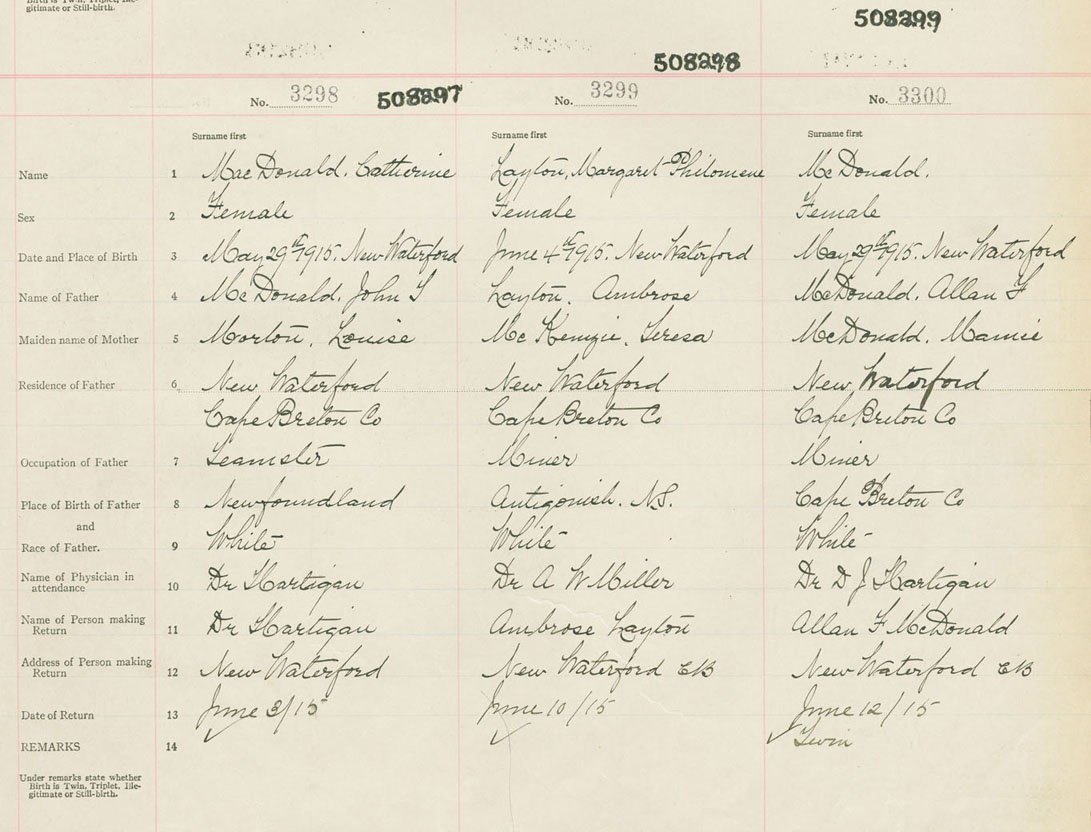 Birth is Twin, Triplet, Ille-
gitimate or Still-birth.
508299
508298
No. 3298 508297 No. 3299 No. 3300
Surname first Surname first Surname first
Name 1 MacDonald. Catherine Layton, Margaret Philomene McDonald.
Sex 2 Female Female Female
Date and Place of Birth 3 May 29th 1915. New Waterford June 4th 1915. New Waterford May 29th 1915. New Waterford
Name of Father 4 McDonald. John S Layton. Ambrose McDonald. Allan F
Maiden name of Mother 5 Morton, Louise McKenzie, Teresa McDonald. Mamie
Residence of Father 6 New Waterford New Waterford New Waterford
Cape Breton Co Cape Breton Co Cape Breton Co
Occupation of Father 7 Teamster Miner Miner
Place of Birth of Father 8 Newfoundland Antigonish. N.S. Cape Breton Co
and
Race of Father. 9 White White White
Name of Physician in
attendance 10 Dr Hartigan Dr A W Miller Dr D J Hartigan
Name of Person making
Return 11 Dr Hartigan Ambrose Layton Allan F McDonald
Address of Person making
Return 12 New Waterford New Waterford CB New Waterford CB
Date of Return 13 June 3/15 June 10/15 June 12/15
REMARKS 14 Twin
Under remarks state whether
Birth is Twin, Triplet, Ille-
gitimate or Still-birth.